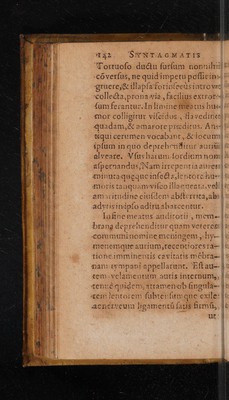 142 SYNTAGMATIS
Tortuoso ductu sursum
cõversus, ne quid impetu possit in-
gruere, & illapsa forinsecus
collecta, prona via, facilius extror-
sum ferantur. In limine meatus hu-
mor colligitur viscidus, flavedine
quadam, & amarore præditus. An-
tiqui cerumen vocabant, & locum
ipsum in quo deprehenditur aurium
alveare. Usus harum sordium non
aspernandus, Nam irrepentia animal
minuta quæque insecta, lentore hu-
moris tanquam visco illaqueata, vel
amaritudine eiusdem absterrita, ab
adytis in ipso aditu abarcentur.
In fine meatus auditorii, mem-
brana deprehenditur quam veteres
communi nomine meningem, hy-
menemque aurium, recentiores ra-
tione imminentis cavitatis mẽbra-
nam tympani appellarunt. Est au-
tem velamentum auris internum,
tenue quidem, attamen ob singula-
rem lentorem subtensumque exile
ac nerveum ligamentũ satis firmũ,
ut